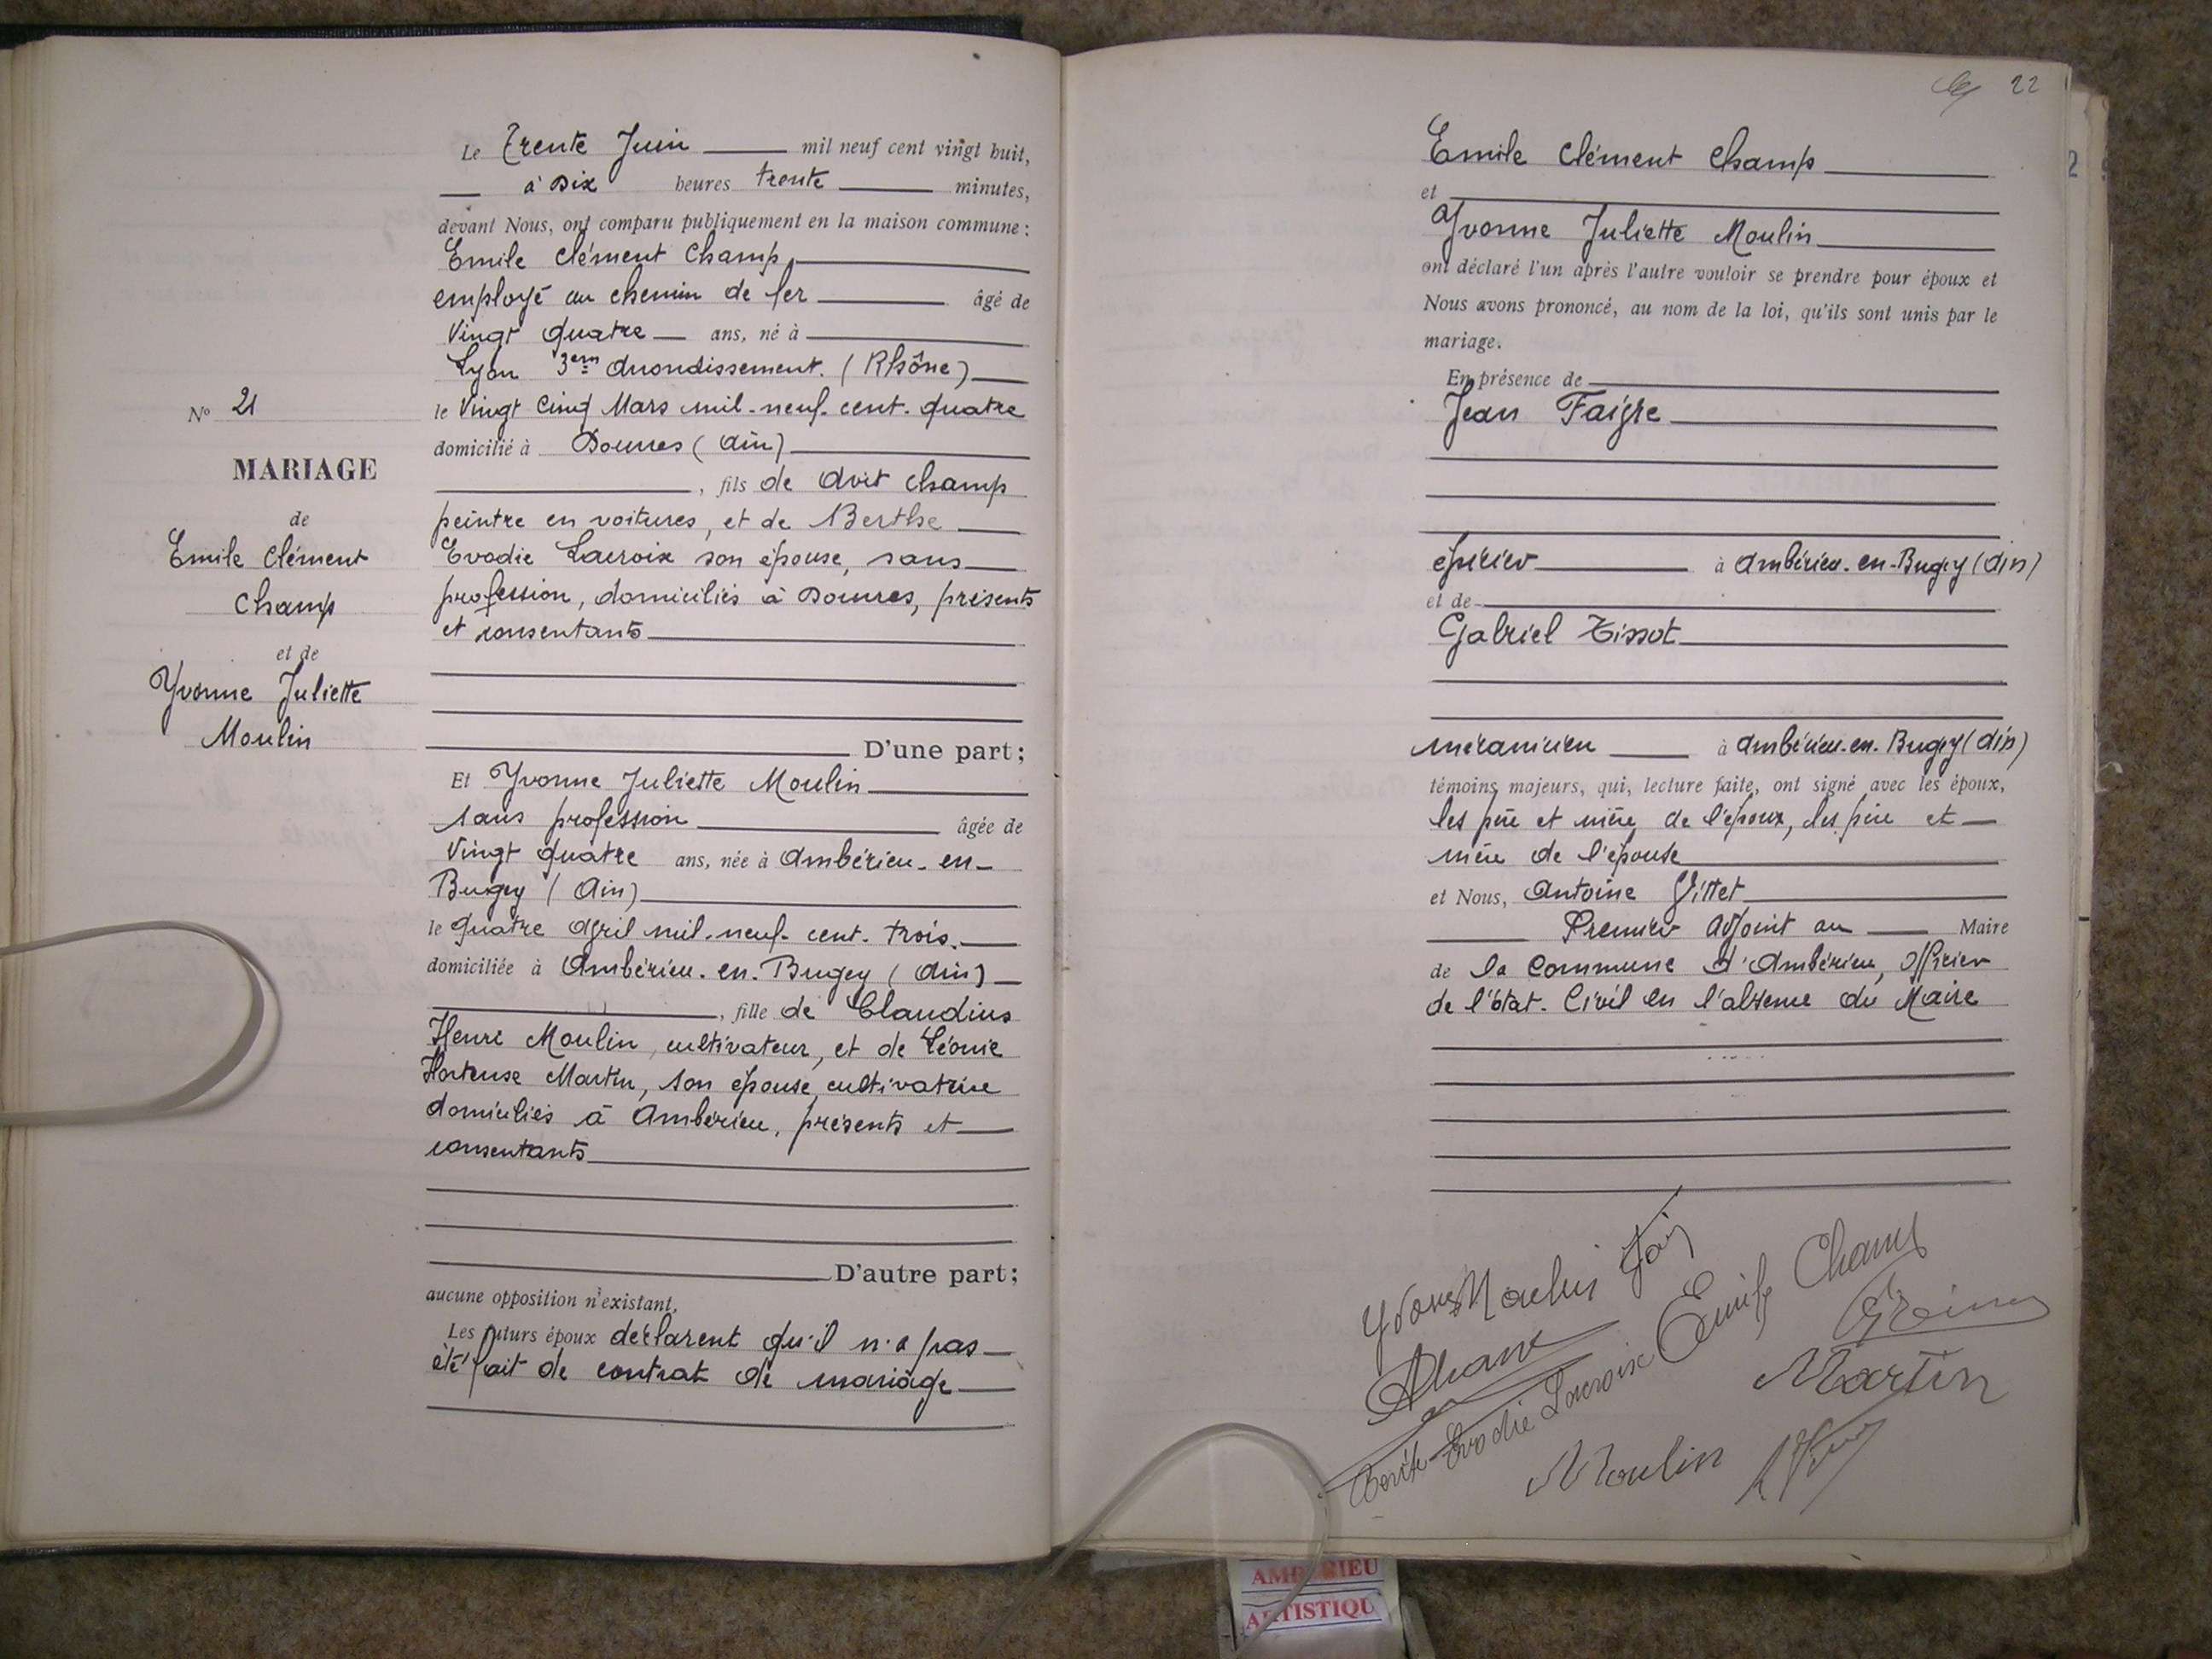 Nº 21
MARIAGE
de
Emile Clément
Champ
et de
Yvonne Juliette
Moulin
Le Trente Juin mil neuf cent vingt huit,
à Dix heures trente minutes,
devant Nous, ont comparu publiquement en la maison commune :
Emile Clément Champ,
employé au chemin de fer âgé de
Vingt quatre ans, né à
Lyon 3em Arrondissement. (Rhône)
le Vingt Cinq Mars mil-neuf-cent-quatre
domicilié à Douvres (Ain)
, fils de Avit Champ
peintre en voitures, et de Berthe
Evodie Lacroix son épouse, sans
profession, domiciliés à Douvres, présents
et consentants
D'une part ;
Et Yvonne Juliette Moulin
sans profession âgée de
Vingt quatre ans, née à Ambérieu-en-
Bugey (Ain)
le quatre Avril mil-neuf-cent-trois.
domiciliée à Ambérieu-en-Bugey (Ain)
, fille de Claudius
Henri Moulin, cultivateur, et de Léonie
Hortense Martin, son épouse, cultivatrice
domiciliés à Ambérieu, présents et
consentants
D'autre part ;
aucune opposition n'existant,
Les futurs époux déclarent qu'il n'a pas
été fait de contrat de mariage
22
Emile Clément Champ
et
Yvonne Juliette Moulin
ont déclaré l'un après l'autre vouloir se prendre pour époux et
Nous avons prononcé, au nom de la loi, qu'ils sont unis par le
mariage.
En présence de
Jean Faigre
épicier à Ambérieu-en-Bugey (Ain)
et de
Gabriel Tissot
mécanicien à Ambérieu-en-Bugey (Ain)
témoins majeurs, qui, lecture faite, ont signé avec les époux,
les père et mère de l'époux, les père et
mère de l'épouse
et Nous, Antoine Vittet
Premier Adjoint au Maire
de la Commune d'Ambérieu, Officier
de l'état-Civil en l'absence du Maire
Yvonne Moulin
Emile Champ
Berthe Evodie Lacroix
Martin
Moulin
AMBERIEU
ARTISTIQU